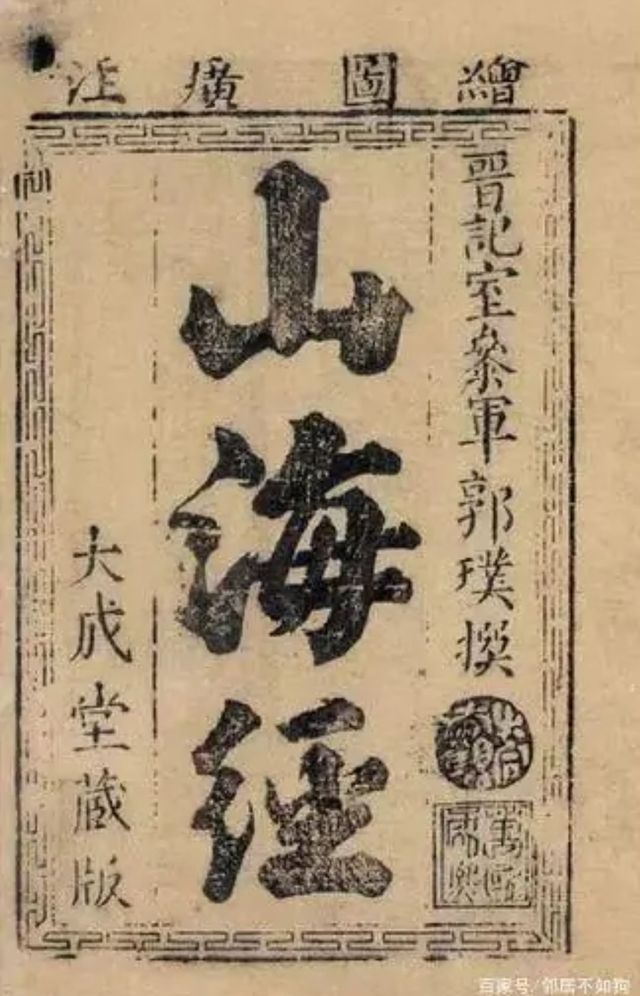 繪圖廣注
晉記室叅軍郭璞撰
山海經
大成堂藏版
百家号/邻居不如狗